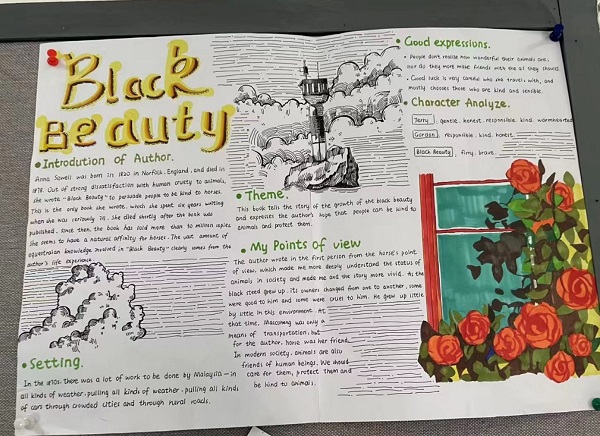 Black
Beauty
Introdution of Author.
Anna Sewell was born in 1820 in Norfolk, England, and died in
1878. Out of strong dissatisfaction with human cruelty to animals,
she wrote "Black Beauty" to persuade people to be kind to horses.
This is the only book she wrote, which she spent six years writing
when she was seriously ill. She died shortly after the book was
published, since then, the book has sold more than 30 million copies
She seems to have a natural affinity for horses. The vast amount of
equestrian knowledge involved in "Black Beauty" clearly comes from the
author's life experience
Setting.
In the 1870s, there was a lot of work to be done by — in
all kinds of weather, pulling all kinds of weather, pulling all kinds
of cars through crowded cities and through rural roads.
Theme.
This book tells the story of the growth of the black beauty
and expresses the author's hope that people can be kind to
animals and protect them.
My Points of view
The author wrote in the first person from the horse's point
of view, which made me more deeply understand the status of
animals in society and made me and the story more vivid. As the
black steed grew up, its owners changed from one to another, some
were good to him and some were cruel to him. He grew up little
by little in this environment. At
that time, was only a
means of transportation, but
for the author, horse was her friend.
In modern society, animals are also
friends of human beings. We should
care for them, protect them and
be kind to animals.
Good expressions.
People don't realise how wonderful their animals are,
nor do they more make friends with the as they should.
Good luck is very careful who she travels with, and
mostly chooses those who are kind and sensible.
Character Analyze.
Jerry, gentle, honest, responsible, kind, warmhearted
Gordon, responsible, kind, honest,
Black Beauty, firm, brave,